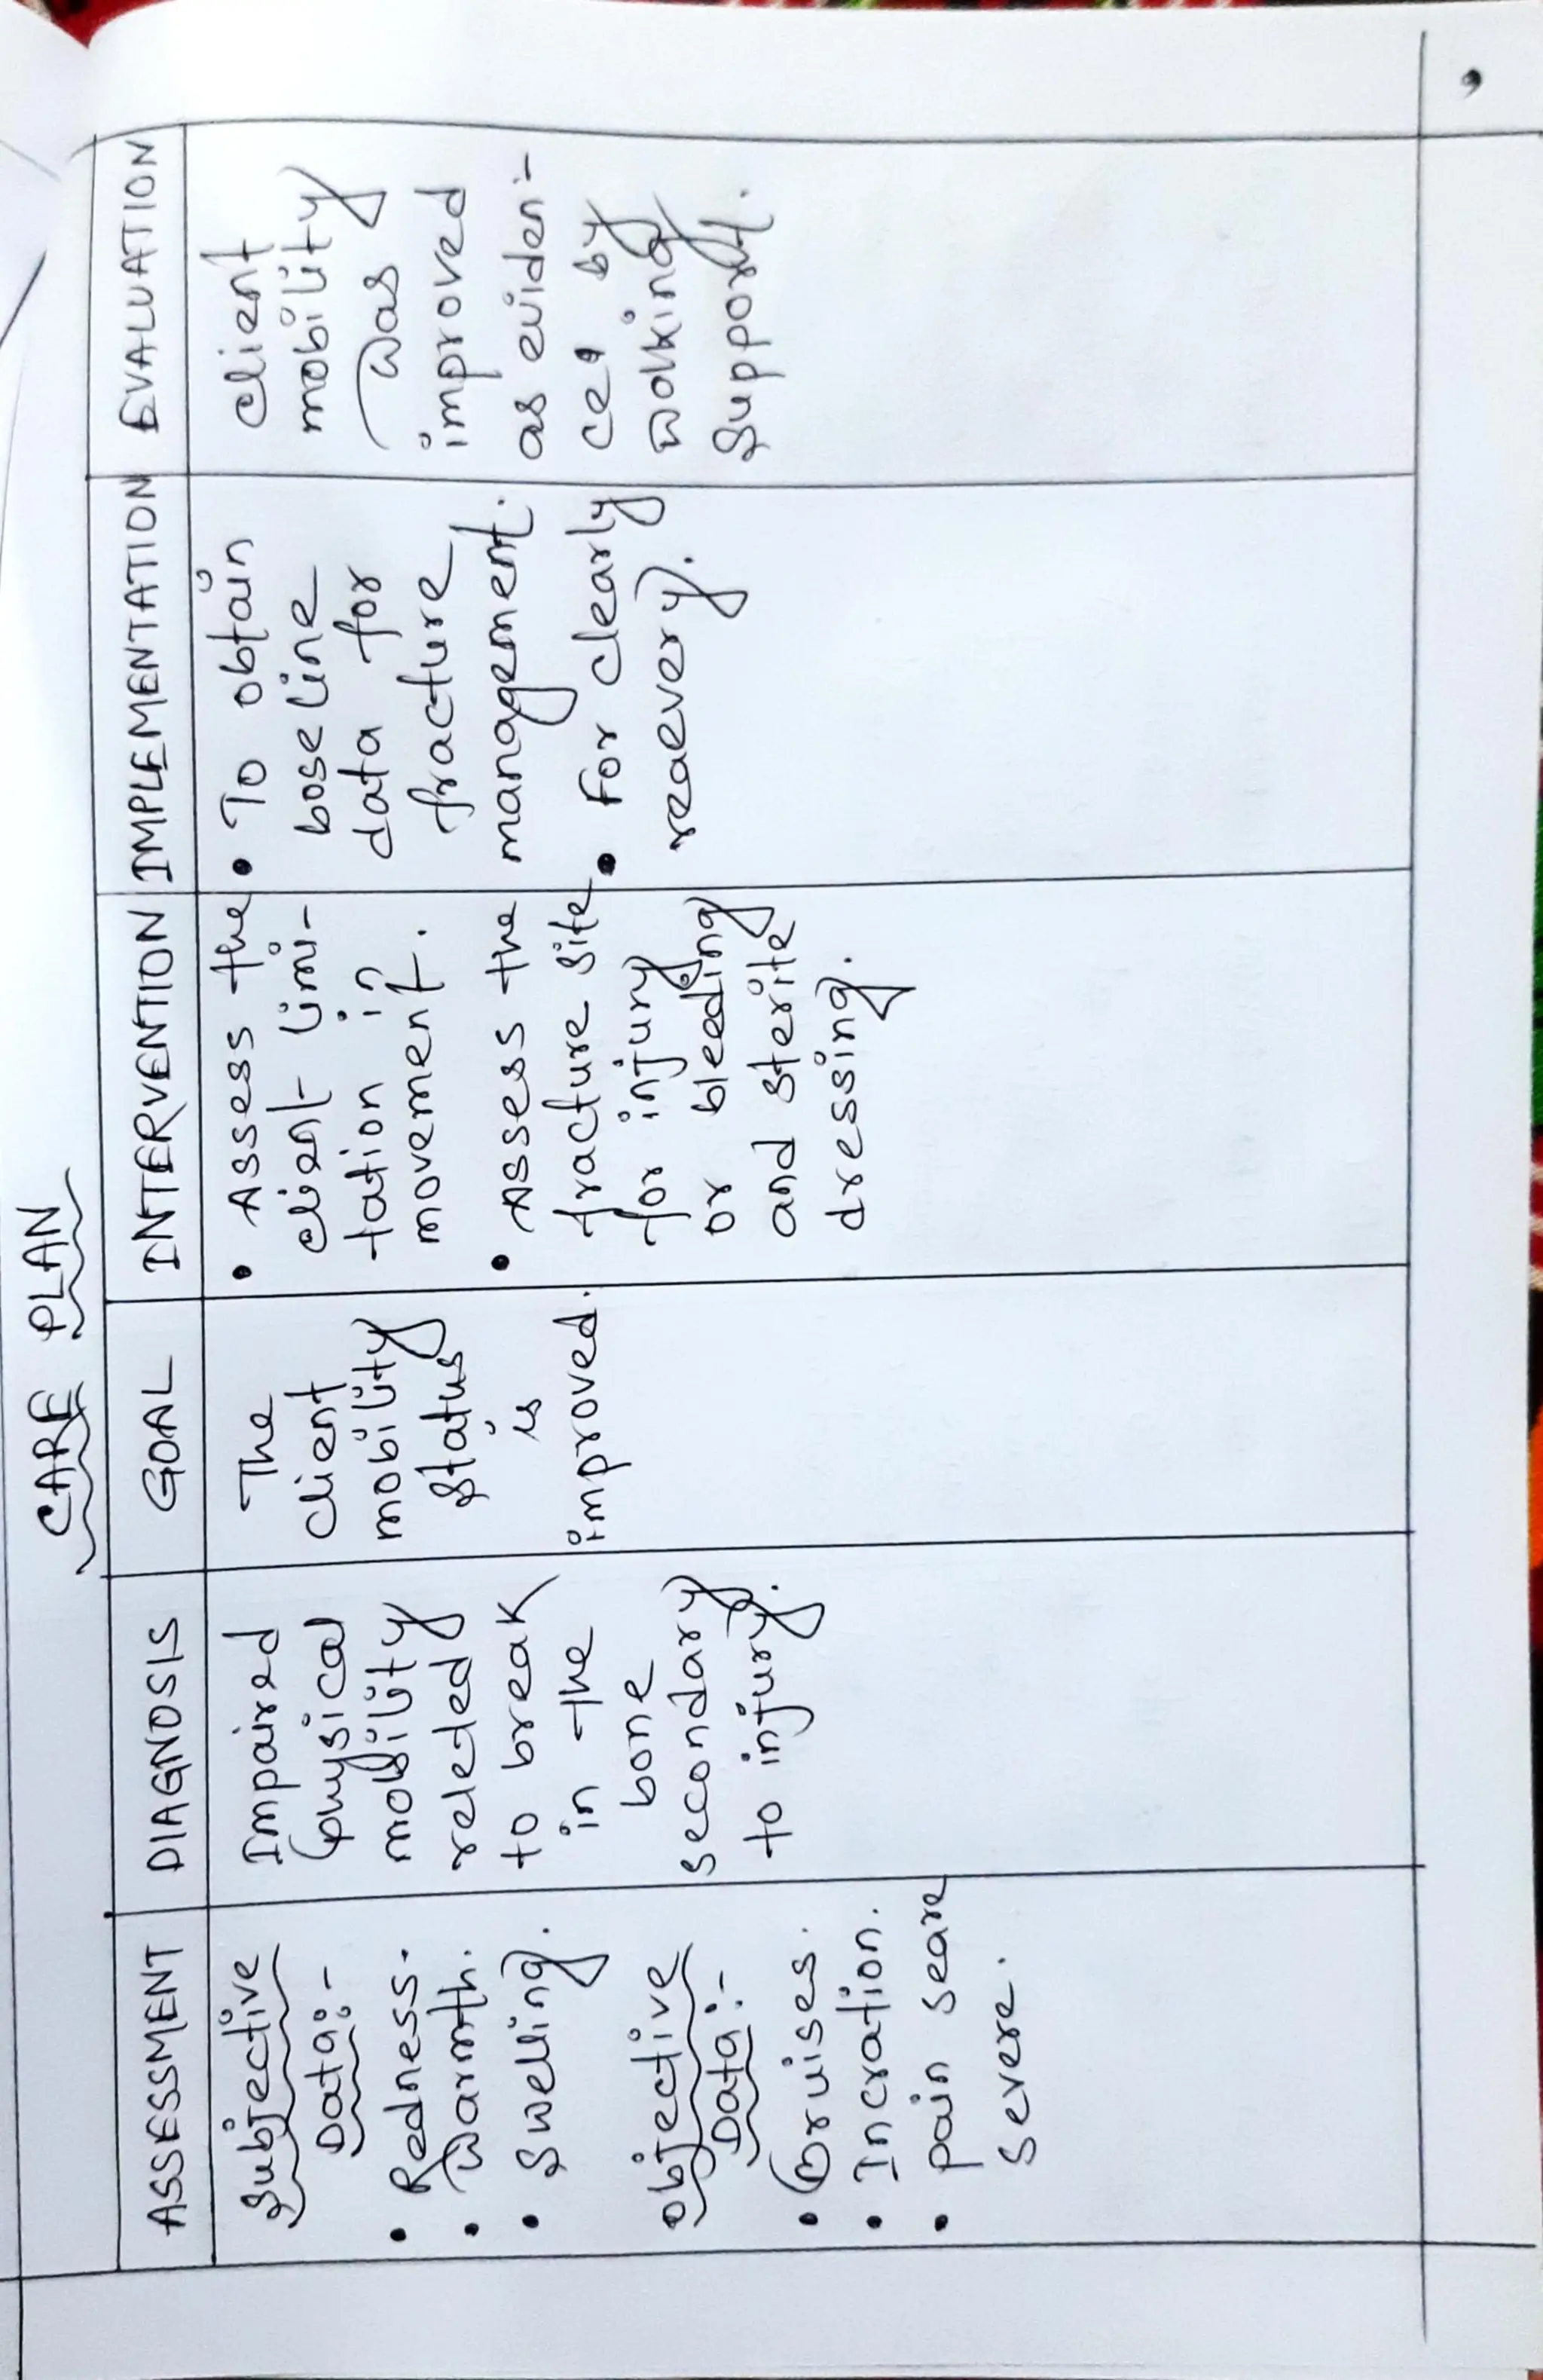 CARE PLAN
ASSESSMENT
Subjective
Data:-
• Redness.
• Warmth.
• Swelling.
Objective
Data:-
• Bruises.
• Incration.
• pain seare
severe.
DIAGNOSIS
Impaired
physical
mobility
releted
to break
in the
bone
secondary
to injury.
GOAL
The
client
mobility
status
is
improved.
INTERVENTION
• Assess the
client limi-
tation in
movement.
• Assess the
fracture site
for injury
or bleeding
and sterite
dressing.
IMPLEMENTATION
• To obtain
boseline
data for
fracture
management.
• For clearly
reaevery.
EVALUATION
client
mobility
was
improved
as eviden:-
ce, by
wolking
support.